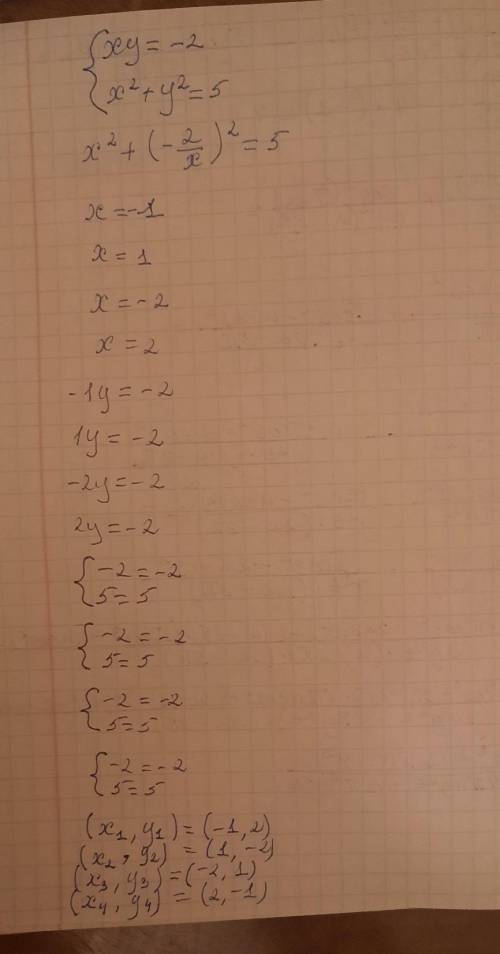 {xy = -2
{x² + y² = 5
x² + (-2/x)² = 5
x = -1
x = 1
x = -2
x = 2
-1y = -2
1y = -2
-2y = -2
2y = -2
{-2 = -2
{5 = 5
{-2 = -2
{5 = 5
{-2 = -2
{5 = 5
{-2 = -2
{5 = 5
(x₁, y₁) = (-1, 2)
(x₂, y₂) = (1, -2)
(x₃, y₃) = (-2, 1)
(x₄, y₄) = (2, -1)